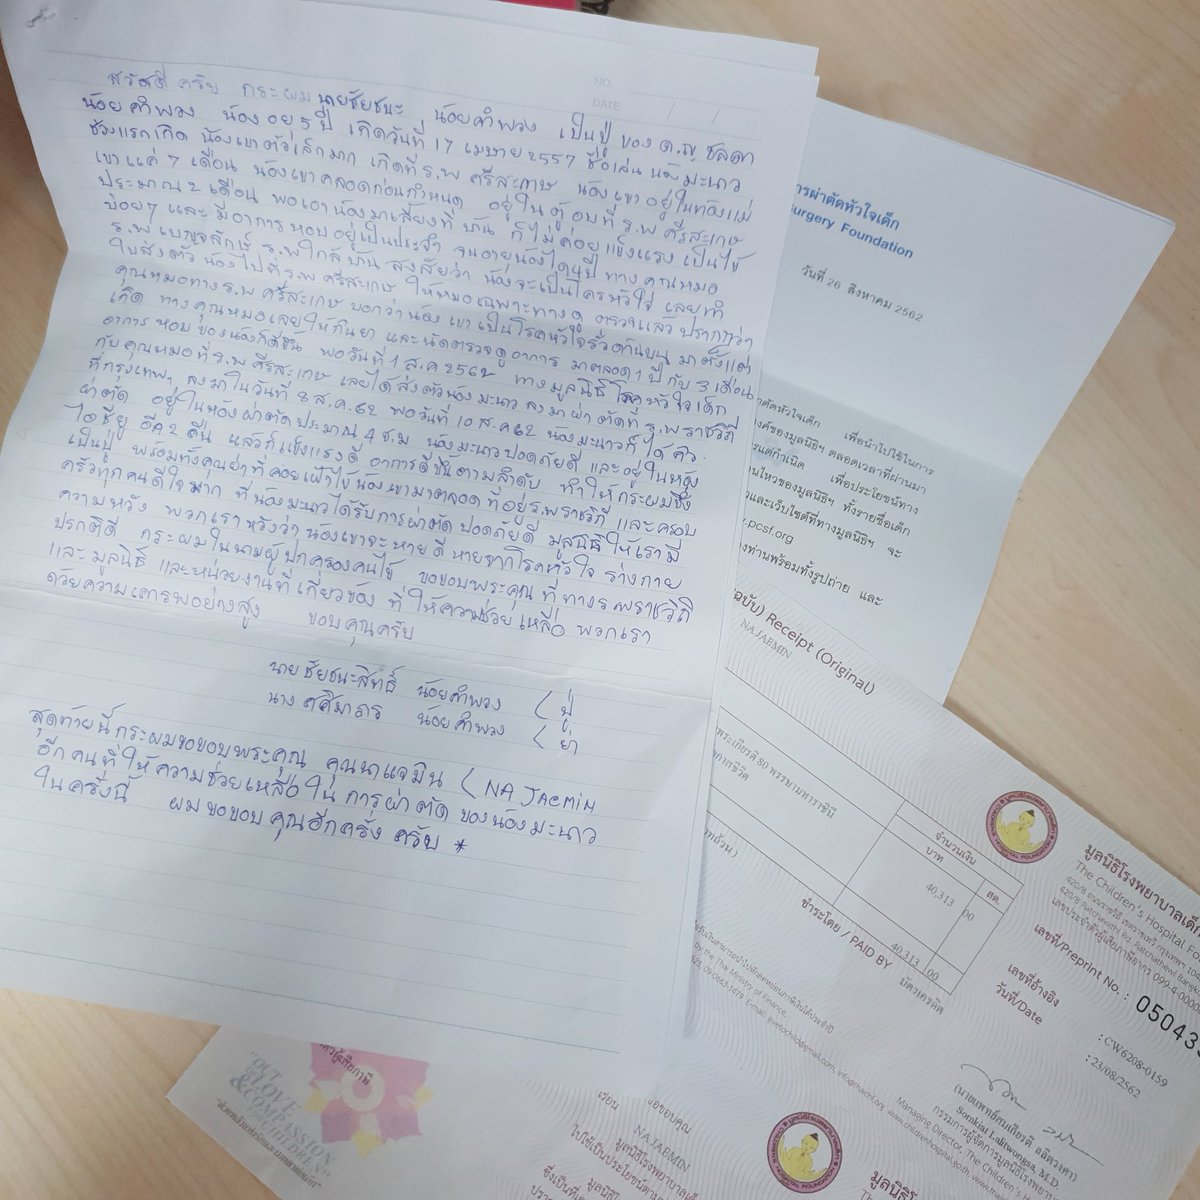 NO.
DATE
สวัสดี ครับ กระผม นายชัยชนะ น้อยคำพวง เป็นปู่ ของ ด.ญ. ชลดา
น้อยคำพวง น้อง อยุ่ 5 ปี เกิดวันที่ 17 เมษายน 2557 ชื่อเล่น น้องมะนาว
ช่วงแรกเกิด น้องเขาตัวเล็กมาก เกิดที่ ร.พ ศรีสะเกษ น้องเขาอยู่ในท้องแม่
เขาแค่ 7 เดือน น้องเขาคลอดก่อนกำหนด อยู่ใน ตู้ อบที่ ร.พ ศรีสะเกษ
ประมาณ 2 เดือน พอเอาน้องมาเลี้ยงที่ บ้าน ก็ไม่ค่อยแข็งแรง เป็นไข้
บ่อยๆ และ มีอาการหอบ อยู่เป็นประจำ จนอายุน้องได้ 4 ปี ทางคุณหมอ
ร.พ เบญจลักษ์ ร.พ ใกล้บ้าน สงสัยว่า น้องจะเป็นโรคหัวใจ เลยทำ
ใบส่งตัว น้องไปที่ ร.พ ศรีสะเกษ ให้หมอเฉพาะทางดู ตรวจแล้วปรากฏว่า
คุณหมอทาง ร.พ ศรีสะเกษ บอกว่าน้อง เขา เป็นโรคหัวใจรั่วด้านบน มาตั้งแต่
เกิด ทางคุณหมอเลยให้กินยา และนัดตรวจดูอาการ มาตลอด 1 ปี กับ 3 เดือน
อาการ หอบ ของน้องก็ดีขึ้น พอวันที่ 1 ส.ค 2562 ทางมูลนิธิโรคหัวใจเด็ก
กับคุณหมอที่ ร.พ ศรีสะเกษ เลยได้ส่งตัวน้องมะนาว ลงมาผ่าตัดที่ ร.พ ราชวิถี
ที่กรุงเทพฯ ลงมาในวันที่ 8 ส.ค. 62 พอวันที่ 10 ส.ค 62 น้องมะนาวก็ได้คิว
ผ่าตัด อยู่ในห้องผ่าตัดประมาณ 4 ช.ม น้องมะนาวปลอดภัยดี และอยู่ในห้อง
ไอซียู อีก 2 คืน แล้วก็แข็งแรงดี อาการดีขึ้นตามลำดับ ทำให้กระผมซึ่ง
เป็นปู่ พร้อมทั้งคุณย่าที่คอยเฝ้าไข้น้องเขามาตลอดที่อยู่ ร.พ ราชวิถี และครอบ
ครัวทุกคนดีใจมาก ที่น้องมะนาวได้รับการผ่าตัดปลอดภัยดี มูลนิธิให้เรามี
ความหวัง พวกเราหวังว่าน้องเขาจะหายดี หายจากโรคหัวใจ ร่างกาย
ปรกติดี กระผมในนามผู้ปกครองคนไข้ ขอขอบพระคุณ ที่ทาง ร.พ ราชวิถี
และ มูลนิธิ และหน่วยงานที่เกี่ยวข้อง ที่ให้ความช่วยเหลือ พวกเรา
ด้วยความเคารพอย่างสูง ขอบคุณครับ
นายชัยชนะสิทธิ์ น้อยคำพวง ( ปู่
นาง ศศิมาภร น้อยคำพวง ( ย่า
สุดท้ายนี้กระผมขอขอบพระคุณ คุณนาแจมิน ( NA JAEMIN
อีกคนที่ให้ความช่วยเหลือใน การผ่าตัด ของน้องมะนาว
ในครั้งนี้ ผมขอขอบคุณอีกครั้ง ครับ *
การผ่าตัดหัวใจเด็ก
urgery Foundation
วันที่ 26 สิงหาคม 2562
าตัดหัวใจเด็ก เพื่อนำไปใช้ในการ
งค์ของมูลนิธิฯ ตลอดเวลาที่ผ่านมา
รแต่กำเนิด เพื่อประโยชน์ทาง
านไหวของมูลนิธิฯ ทั้งรายชื่อเด็ก
วและเว็บไซต์ที่ทางมูลนิธิฯ จะ
.pcsf.org
งท่านพร้อมทั้งรูปถ่าย และ
ฉบับ) Receipt (Original)
NAJAEMIN
พระเกียรติ 80 พรรษามหาราชินี
อกาสชีวิต
จำนวนเงิน
บาท สต.
40,313 00
40,313 00
ชำระโดย / PAID BY บัตรเครดิต
by the Thai Ministry of Finance.
มูลนิธิโรงพยาบาลเด็ก
The Children's Hospital Fou
420/8 ถนนราชวิถี เขตราชเทวี กรุงเทพฯ
420/8 Ratchawithi Rd. Ratchathewi Bangko
เลขประจำตัวผู้เสียภาษีอากร 099-4-0000
เลขที่/Preprint No. : 050435
เลขที่อ้างอิง : CW6208-0159
วันที่/Date : 23/08/2562
Somkiat Lalitwongsa, M.D.
กรรมการผู้จัดการมูลนิธิโรงพยาบาลเด็ก
Managing Director, The Children's
"OUT
of LOVE
& COMPASSION
for CHILDREN"
เรียน NAJAEMIN
ขอขอบคุณ
มูลนิธิโรงพยาบาลเด็
ไปใช้เป็นประโยชน์ตาม
มูลนิธิโร
The Child